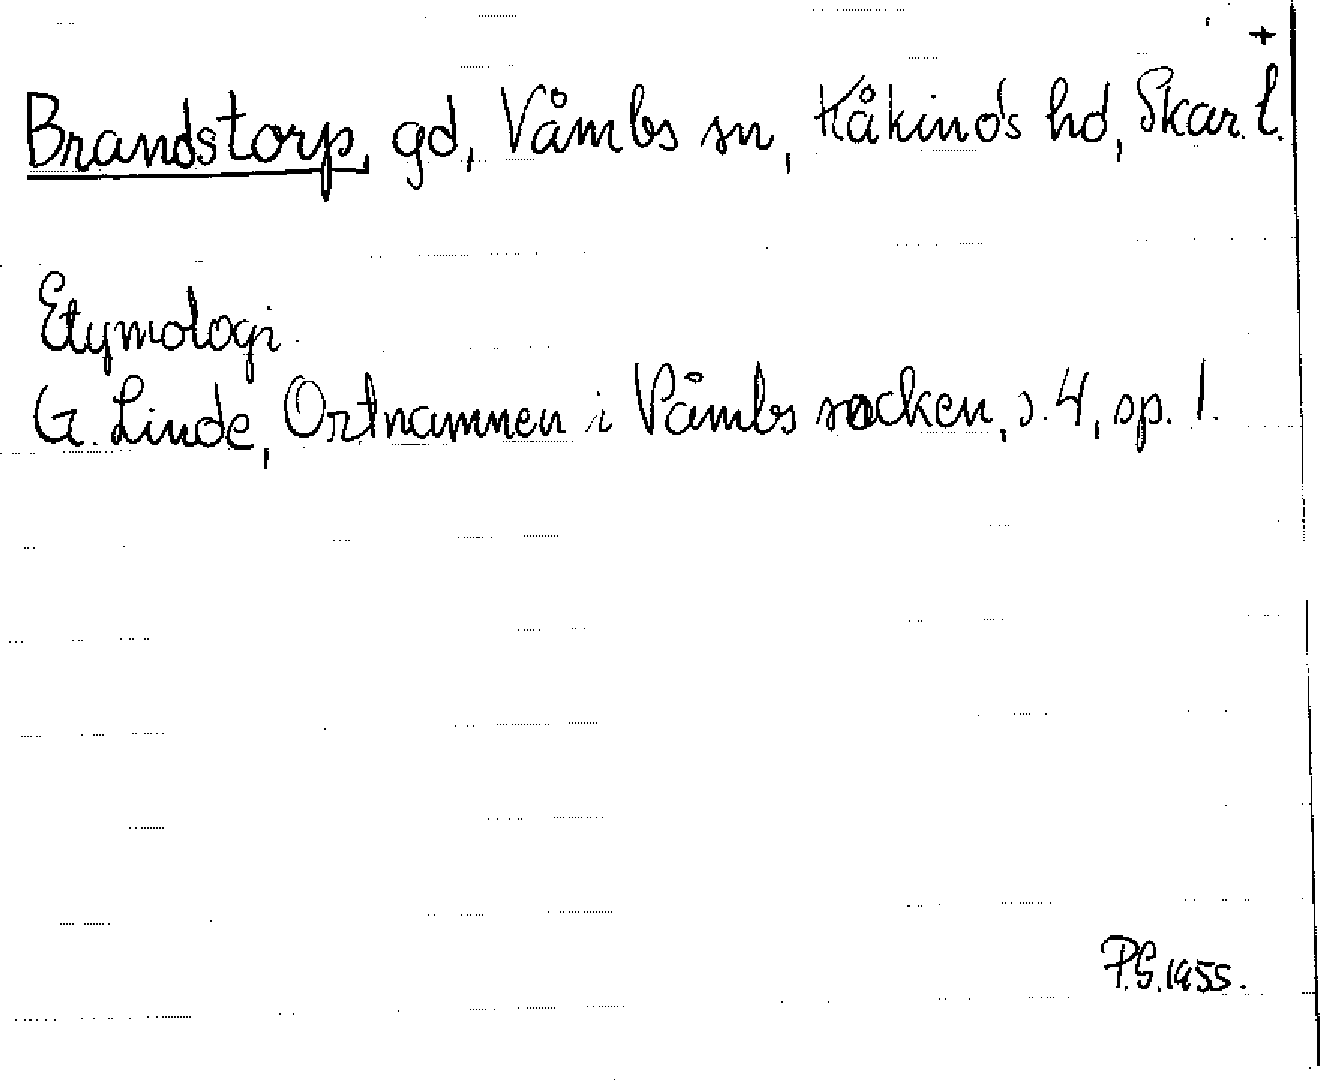 +
Brandstorp, gd, Våmbs sn, Kåkinds hd, Skar. l.
Etymologi.
G. Linde, Ortnamnen i Våmbs socken, s. 4, sp. 1.
P.G. 1955.